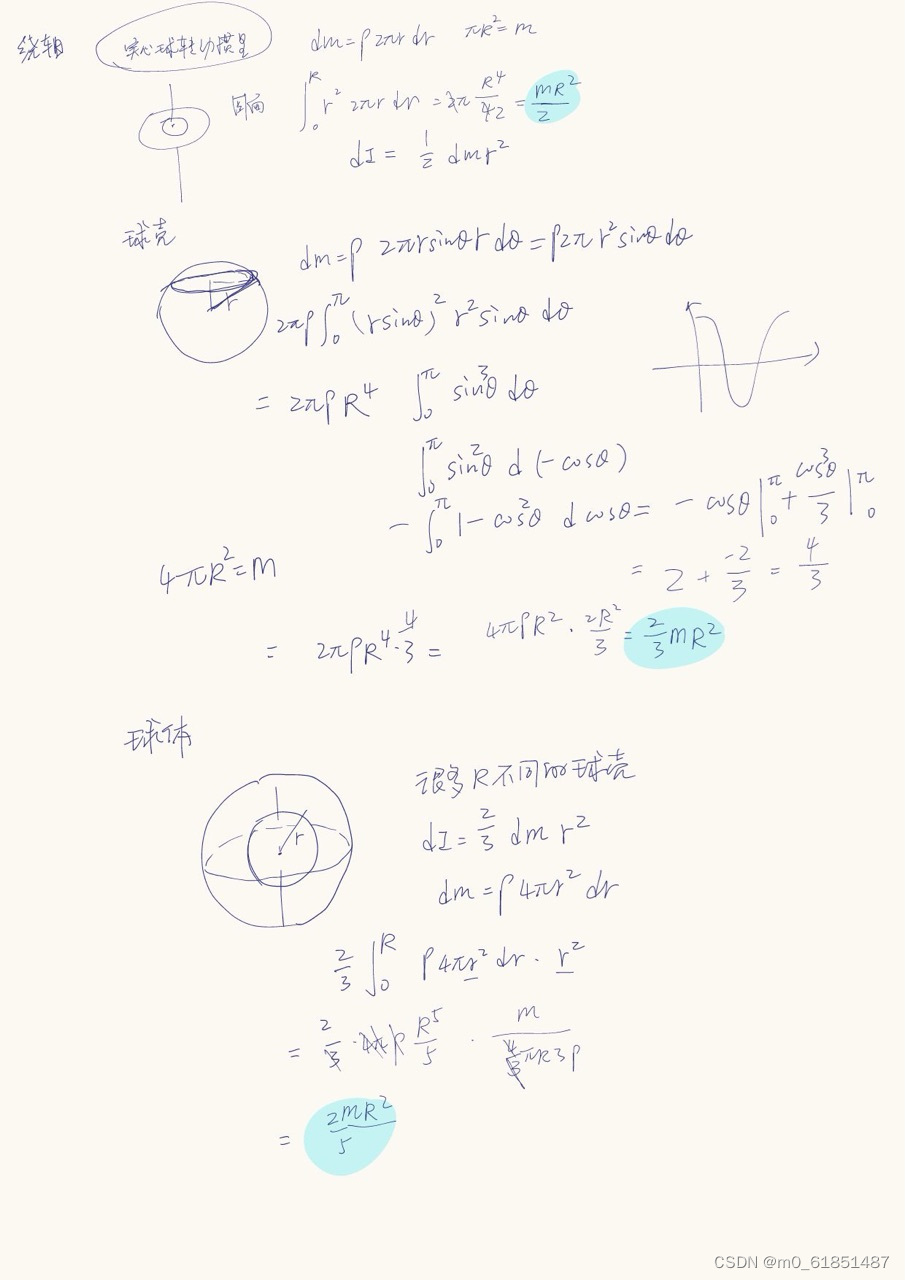 绕轴 实心球转动惯量 dm=ρ2πr dr πR²=m
圆面 ∫₀ᴿ r² 2πr dr = 2π R⁴/42 = mR²/2
dI = 1/2 dmr²
球壳
dm=ρ 2πrsinθr dθ=ρ2πr²sinθdθ
r
2πρ∫₀^π (rsinθ)² r²sinθ dθ
= 2πρR⁴ ∫₀^π sin³θ dθ
∫₀^π sin²θ d(-cosθ)
-∫₀^π 1-cos²θ dcosθ= -cosθ|₀^π + cos³θ/3|₀^π
4πR²=m
= 2 + -2/3 = 4/3
= 2πρR⁴·4/3 = 4πρR²·2R²/3 = 2/3 mR²
球体
很多R不同的球壳
r
dI=2/3 dm r²
dm=ρ4πr² dr
2/3 ∫₀ᴿ ρ4πr² dr · r²
= 2/3 · 4πρ R⁵/5 · m/(4/3 πR3ρ)
= 2mR²/5
CSDN @m0_61851487